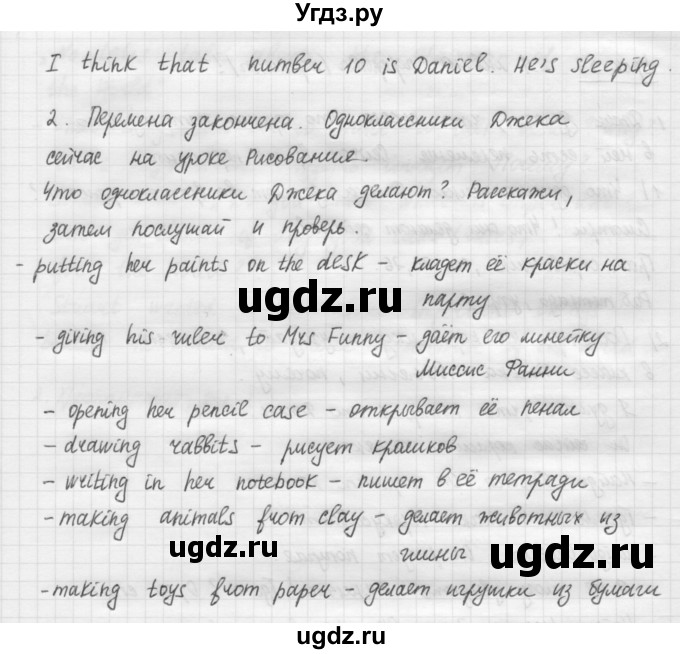 Угдз.ру
I think that number 10 is Daniel. He's sleeping.
2. Перемена закончена. Одноклассники Джека
сейчас на уроке Рисования.
Что одноклассники Джека делают? Расскажи,
затем послушай и проверь.
- putting her paints on the desk - кладет её краски на
парту
ugdz.ru ugdz.ru
- giving his ruler to Mrs Funny - даёт его линейку
Миссис Фанни
- opening her pencil case - открывает её пенал
- drawing rabbits - рисует кроликов
- writing in her notebook - пишет в её тетради
- making animals from clay - делает животных из
глины
ugdz.ru ugdz.ru
- making toys from paper - делает игрушки из бумаги
ugdz.ru